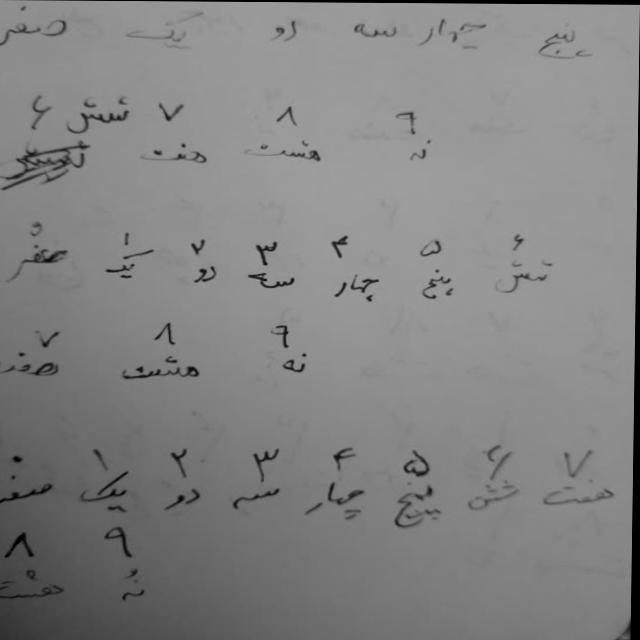 پنج چهار سه دو یک صفر
۹ ۸ ۷ شش ۶
نه هشت هفت
۶ ۵ ۴ ۳ ۲ ۱ ۰
شش پنج چهار سه دو یک صفر
۹ ۸ ۷
نه هشت هفت
۷ ۶ ۵ ۴ ۳ ۲ ۱ ۰
هفت شش پنج چهار سه دو یک صفر
۹ ۸
نه هشت